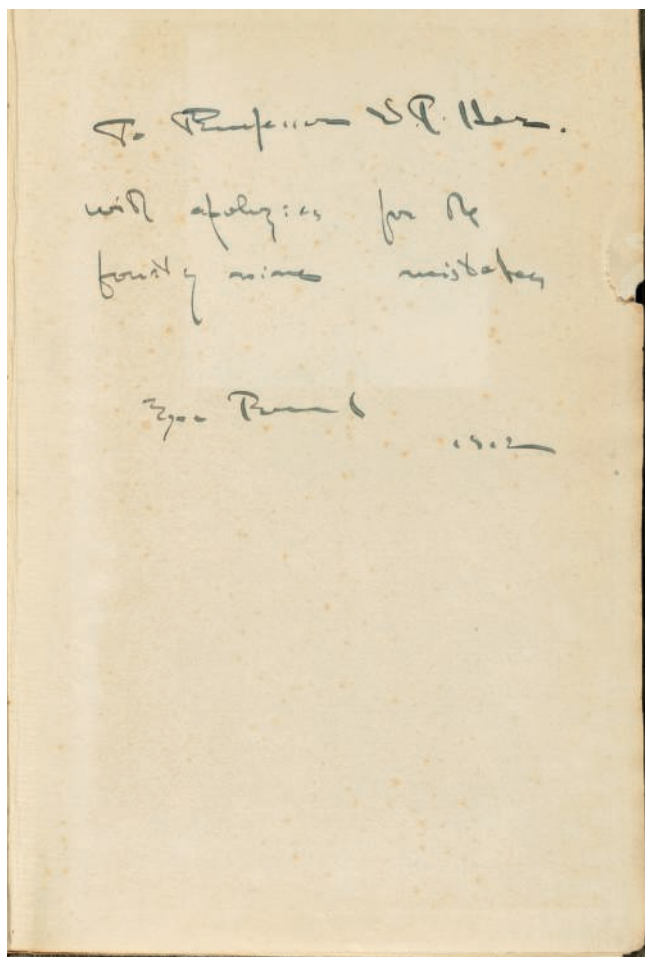 To Professor W.P. Ker.
with apologies for the
fourty nine mistakes
Ezra Pound
1912